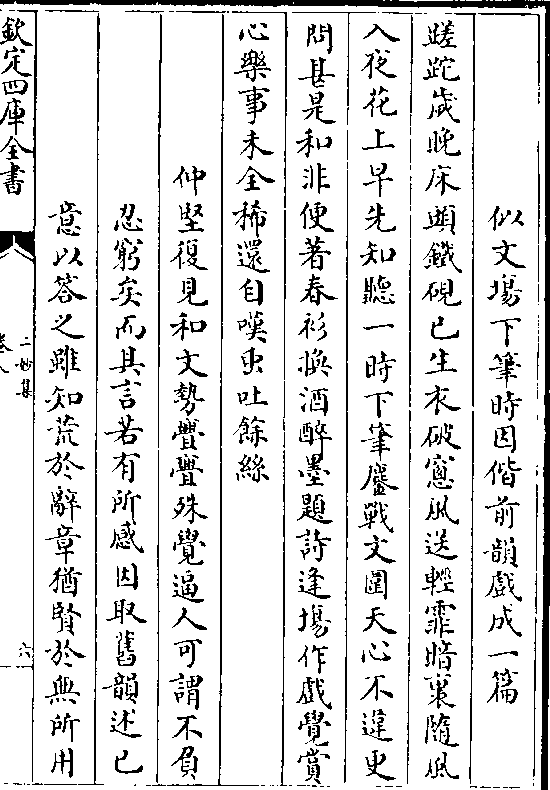 似文場下筆時因偕前韻戲成一篇
蹉跎歲晚床頭鐵硯已生衣破窻風送輕霏暗裏隨風
入夜花上早先知聽一時下筆鏖戰文圍天心不違更
問甚是和非便著春衫換酒醉墨題詩逢塲作戲覺賞
心樂事未全稀還自嘆虫吐餘絲
仲堅復見和文勢亹亹殊覺逼人可謂不負
忍窮矣而其言若有所感因取舊韻述已
意以答之雖知荒於辭章猶賢於無所用
欽定四庫全書
二妙集
卷八
六